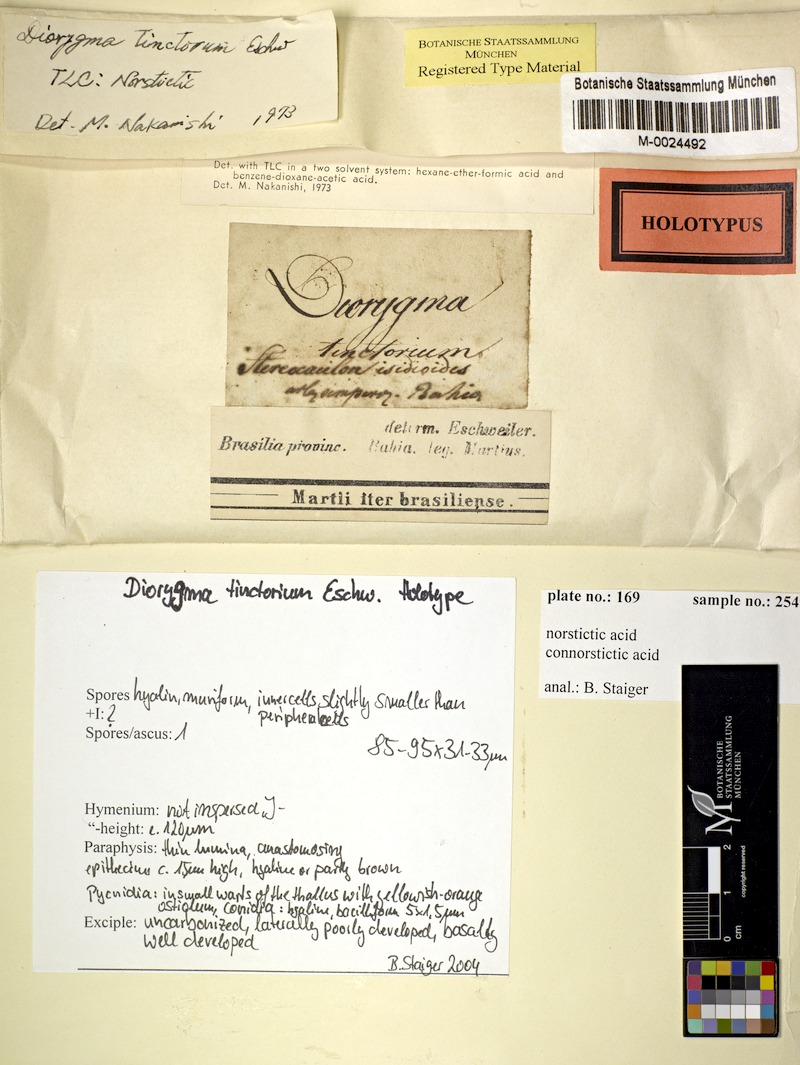 Diorygma tinctorum Eschw
TLC: Norstictic
Det. M. Nakanishi, 1973
BOTANISCHE STAATSSAMMLUNG
MÜNCHEN
Registered Type Material
Botanische Staatssammlung München
M-0024492
Det. with TLC in a two solvent system: hexane-ether-formic acid and
benzene-dioxane-acetic acid.
Det. M. Nakanishi, 1973
HOLOTYPUS
Diorygma
tinctorium
Stereocaulon isidioides
Bahia
determ. Eschweiler.
Brasilia provinc. Bahia. leg. Martius.
Martii iter brasiliense.
Diorygma tinctorium Eschw. Holotype
Spores hyalin, muriform, inner cells slightly smaller than
+I: ? peripheral cells
Spores/ascus: 1
85-95x31-33µm
Hymenium: not inspersed, J-
“-height: c. 120µm
Paraphysis: thin lumina, anastomosing
epithecium c. 15µm high, hyaline or partly brown
Pycnidia: in small warts of the thallus with yellowish-orange
ostiolum, conidia: hyaline, bacilliform 5x1,5µm
Exciple: uncarbonized, laterally poorly developed, basally
well developed
B. Staiger 2004
plate no.: 169 sample no.: 254
norstictic acid
connorstictic acid
anal.: B. Staiger
BOTANISCHE
STAATSSAMMLUNG
MÜNCHEN
copyright reserved
0 1 2
cm